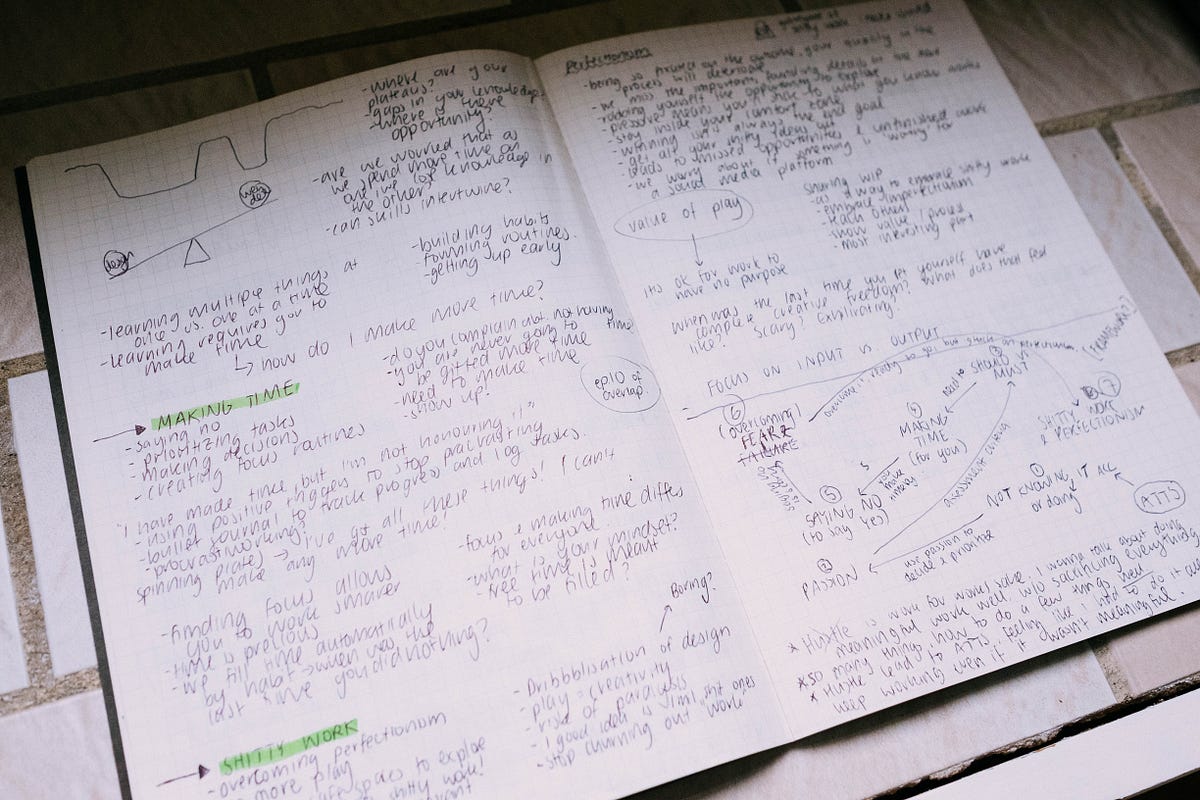 - where are your
plateaus?
- gaps in your knowledge
- where is there
opportunity?
- are we worried that as
we spend more time on
one we lose knowledge in
the other?
- can skills intertwine?
web dev
design
- building habits
- forming routines
- getting up early
- learning multiple things at
once vs. one at a time
- learning requires you to
make time
how do I make more time?
- do you complain abt not having
time?
- you are never going to
be gifted more time
- need to make time
- show up!
ep 10 of
overlap.
MAKING TIME
- saying no
- prioritizing tasks
- making decisions
- creating focus routines
"I have made time, but I'm not honouring it"
- using positive triggers to stop procrasting
- bullet journal to track progress and log tasks.
- procrastworking?
spinning plates → I've got all these things! I can't
make any more time!
- focus & making time differs
for everyone.
- what is your mindset?
- free time is meant
to be filled?
- finding focus allows
you to work smarter
- time is precious
- we fill time automatically
by habit → when was the
last time you did nothing?
Boring?
- Dribbblisation of design
- play = creativity
- risk of paralysis
- 1 good idea is 1 mil shit ones
- stop churning out work
SHITTY WORK
- overcoming perfectionism
- more play
safe spaces to explore
shitty work!
Perfectionism
- being so focused on the outcome, your quality in the
process will deteriorate
- we miss the important founding details
- robbing yourself the opportunity to explore
- stay inside your comfort zone
- winning isn't always the end goal
- get all your shitty ideas out
- leads to missed opportunities & unfinished work
- we worry about if something is worthy for
a social media platform
value of play
sharing WIP
- as a way to embrace shitty work
- embrace imperfection
- teach others
- show value / process
- most interesting part
it's ok for work to
have no purpose
when was the last time you let yourself have
complete creative freedom? What does that feel
like? Scary? Exhilarating?
- FOCUS ON INPUT VS OUTPUT
(framework?)
⑥
(overcoming)
FEAR &
FAILURE
③
SHOULD VS
MUST
need to
④
MAKING
TIME
(for you)
⑦
SHITTY WORK
& PERFECTIONISM
⑤
SAYING NO
(to say yes)
①
NOT KNOWING IT ALL
or doing
ATTS
②
PASSION
use passion to
decide & prioritize
* Hustle is work for works sake. I wanna talk about doing
meaningful work well w/o sacrificing everything
* so many things, how to do a few things well
* Hustle lead to ATTS, feeling like I had to do it all
keep working even if it wasn't meaningful.